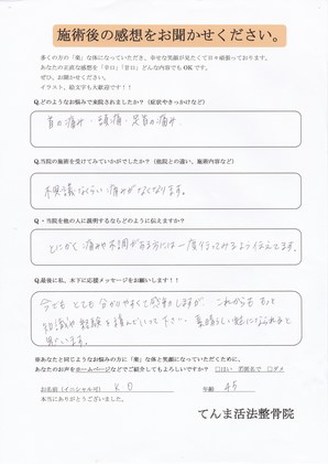 施術後の感想をお聞かせください。
多くの方の「楽」な体になっていただき、幸せな笑顔が見たくて日々頑張っております。
あなたの正直な感想を「辛口」「甘口」どんな内容でもOKです。
ぜひ、お聞かせください。
イラスト、絵文字も大歓迎です！！
Q.どのようなお悩みで来院されましたか？（症状やきっかけなど）
首の痛み・頭痛・足首の痛み
Q.当院の施術を受けてみていかがでしたか？（他院との違い、施術内容など）
不思議なくらい痛みがなくなります。
Q・当院を他の人に説明するならどのように伝えますか？
とにかく痛みや不調がある方には一度行ってみるよう伝えてます。
Q.最後に私、木下に応援メッセージをお願いします！！
今でもとても分かりやすくて感動しますが、これからももっと
知識や経験を積んでいって下さい。素晴らしい
思います。
※あなたと同じようなお悩みの方に「楽」な体と笑顔になっていただくために、
あなたのお声をホームページなどでご紹介してもよろしいですか？ □はい ☑匿名で □ダメ
お名前（イニシャル可） K O 年齢 45
本当にありがとうございました。
てんま活法整骨院